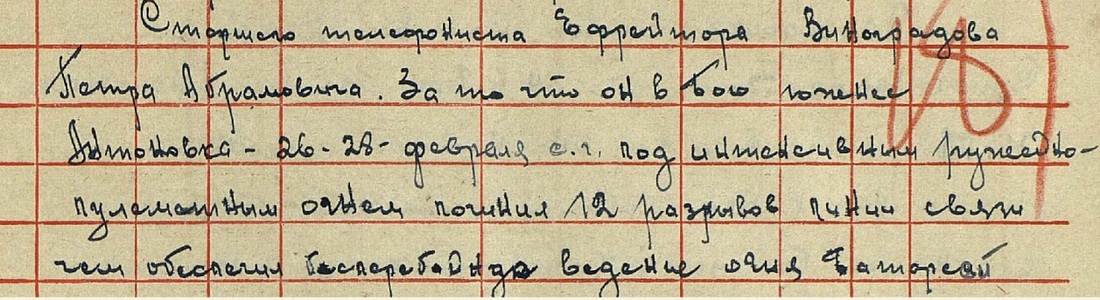 Старшего телефониста Ефрейтора Виноградова
Петра Абрамовича. За то что он в бою южнее
Антоновка - 26-28- февраля с.г. под интенсивним ружейно-
пулеметным огнем починил 12 разрывов линии связи
чем обеспечил бесперебойндо ведение огня батареей